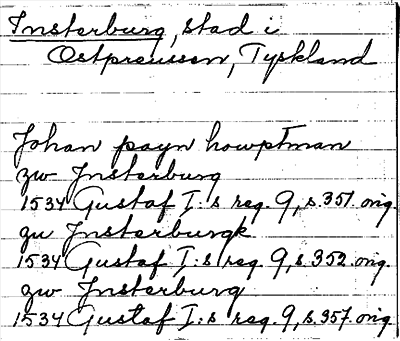 Insterburg, stad i
Ostpreussen, Tyskland
Johan payn howptman
zw Insterburg
1534 Gustaf I:s reg. 9, s. 351. orig.
zu Insterburgk
1534 Gustaf I:s reg. 9, s. 352. orig.
zw Insterburg
1534 Gustaf I:s reg. 9, s. 357. orig.